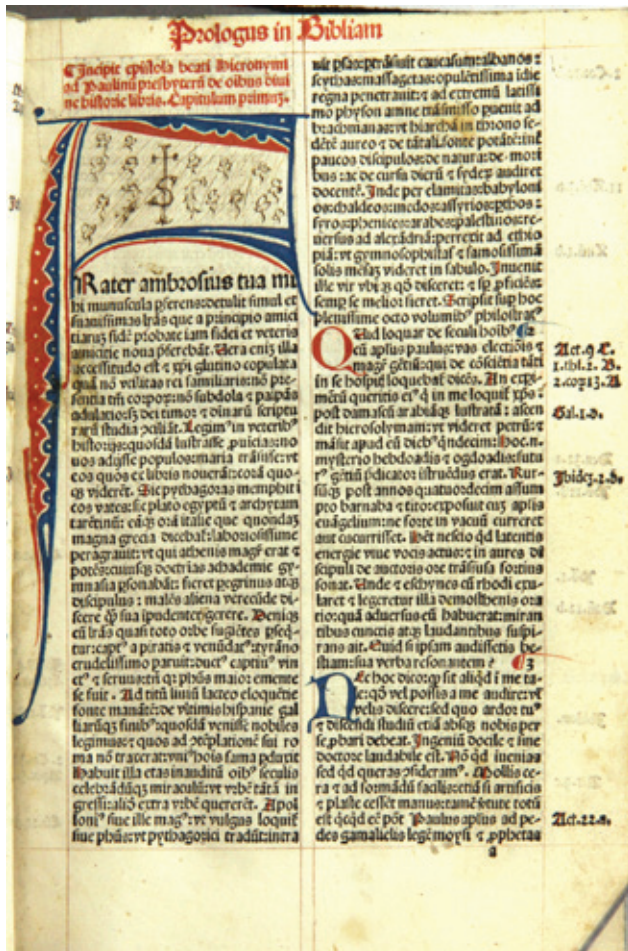 Prologus in Bibliam
Incipit epistola beati Hieronymi
ad Paulinū presbyterū de oībus diui
ne historie libris. Capitulum primuʒ.
Frater ambrosius tua mi
hi munuscula ꝑferens: detulit simul et
suauissimas lr̄as que a principio amici
tiaruʒ fidē probate iam fidei et veteris
amicitie noua ꝑferebāt. Uera eniʒ illa
necessitudo est ⁊ xp̄i glutino copulata
quā nō vtilitas rei familiaris: nō pre
sentia tm̄ corpoꝝ: nō subdola ⁊ palpās
adulatio: sʒ dei timor ⁊ diuinarū scriptu
rarū studia ꝯciliāt. Legimꝰ in veteribꝰ
historijs: quosdā lustrasse ꝓuicias: no
uos adijsse populos: maria trāsisse: vt
eos quos ex libris nouerāt: corā quo-
qꝫ viderēt. Sic pythagoras memphiticos
vates: sic plato egyptū ⁊ archytam
tarētinū: eāqꝫ orā italie que quondaʒ
magna grecia dicebat̄: laboriosissime
peragrauit: vt qui athenis magr̄ erat ⁊
potēs: cuiusqꝫ doctrias achademie gy-
mnasia ꝑsonabāt: fieret ꝑegrinus atqꝫ
discipulus: malēs aliena verecūde di-
scere qͫ sua īpudenter gerere. Deniqꝫ
cū lr̄as quasi toto orbe fugiētes ꝑseqt̄-
tur: captꝰ a piratis ⁊ venūdatꝰ: tyrāno
crudelissimo paruit: ductꝰ captiuꝰ vin
ctꝰ ⁊ seruus: tn̄ qꝛ phūs maior emente
se fuit. Ad titū liuiū lacteo eloquētie
fonte manātē: de vltimis hispanie gal
liarūqꝫ finibꝰ: quosdā venisse nobiles
legimus: ⁊ quos ad ꝯtēplationē sui ro
ma nō traxerat: vniꝰ hoīs fama ꝑduxit
Habuit illa etas inauditū oībꝰ seculis
celebrādūqꝫ miraculū: vt vrbē tātā in
gressi: aliō extra vrbē quererēt. Apol
loniꝰ siue ille magꝰ: vt vulgus loquit̄
siue phūs: vt pythagorici tradūt: intra
uit psas: ptrāsiuit caucasum: albanos:
scythas: massagetas: opulētissima idie
regna penetrauit: ⁊ ad extremū latissi
mo physon amne trāsmisso puenit ad
brachmanas: vt hiarchā in throno se-
dētē aureo ⁊ de tātali fonte potātē: int̄
paucos discipulos: de natura: de mori
bus: ac de cursu dierū ⁊ syderꝝ audiret
docentē. Inde per elamitas: babyloni
os: chaldeos: medos: assyrios: pthos:
syros: phenices: arabes: palestinos: re-
uersus ad alexādriā: perrexit ad ethio
piā: vt gymnosophistas ⁊ famosissimā
solis mēsaʒ videret in sabulo. Inuenit
ille vir vbiqꝫ qd̄ disceret: ⁊ sp̄ ꝓficiēs:
sempꝫ se melior fieret. Scripsit suꝑ hoc
plenissime octo voluminibꝰ philostratꝰ
Quid loquar de seculi hoībꝰ 2
cū aplus paulus: vas electiōis ⁊
magr̄ gētiū: qui de cōsciētia tāti
in se hospitis loquebat̄ dicēs. An expe
rimētū queritis eiꝰ q̄ in me loquit̄ xps̄:
post damascū arabiāqꝫ lustratā: ascen
dit hierosolymam: vt videret petrū: ⁊
māsit apud eū diebꝰ qͥndecim: Hoc.n.
mysterio hebdoadis ⁊ ogdoadis: futu
rꝰ gētiū p̄dicator istruēdus erat. Rur-
susqꝫ post annos quatuordecim assum
pto barnaba ⁊ tito: exposuit cuʒ aplis
euāgelium: ne forte in vacuū curreret
aut cucurrisset. Hēt nescio qd̄ latentis
energie viue vocis actus: ⁊ in aures di
scipuli de auctoris ore trāsfusa fortius
sonat. Unde ⁊ eschynes cū rhodi exu-
laret ⁊ legeretur illa demosthenis ora
tio: quā aduersus eū habuerat: miran
tibus cunctis atqꝫ laudantibus suspi
rans ait. Quid si ipsam audissetis be-
stiam: sua verba resonantem? 3
Nec hoc dico: qꝫ sit aliqͥd ī me ta-
le: qd̄ vel possis a me audire: vel
velis discere: sed quo ardor tuꝰ
⁊ discendi studiū etiā absqꝫ nobis per
se ꝓbari debeat. Ingeniū docile ⁊ sine
doctore laudabile est. Nō qd̄ inuenias
sed qd̄ queras ꝯsideramꝰ. Mollis ce-
ra ⁊ ad formādū facilis: etiā si artificis
⁊ plaste cesset manus: tamē v̄tute totū
est qͥcqͥd eē pōt̄ Paulus aplus ad pe-
des gamalielis legē moysi ⁊ ꝓphetas
a
Act.9 C.
1.thī.2. B.
2.coꝝ 13. A
Gal.1.d.
Ibideʒ.2.b.
Act.22.a.